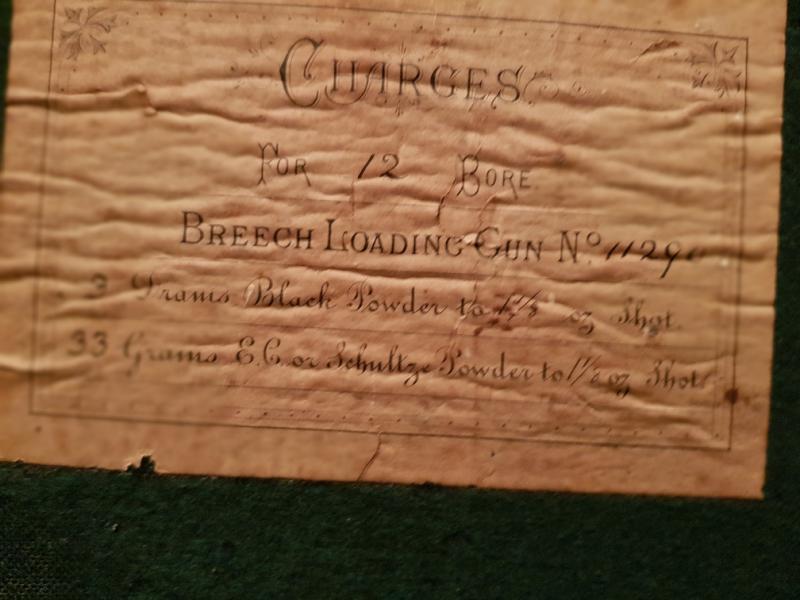 CHARGES
FOR 12 BORE
BREECH LOADING GUN No. 11290
3 Drams Black Powder to 1 1/8 oz Shot.
33 Grams E.C. or Schultze Powder to 1 1/8 oz Shot.